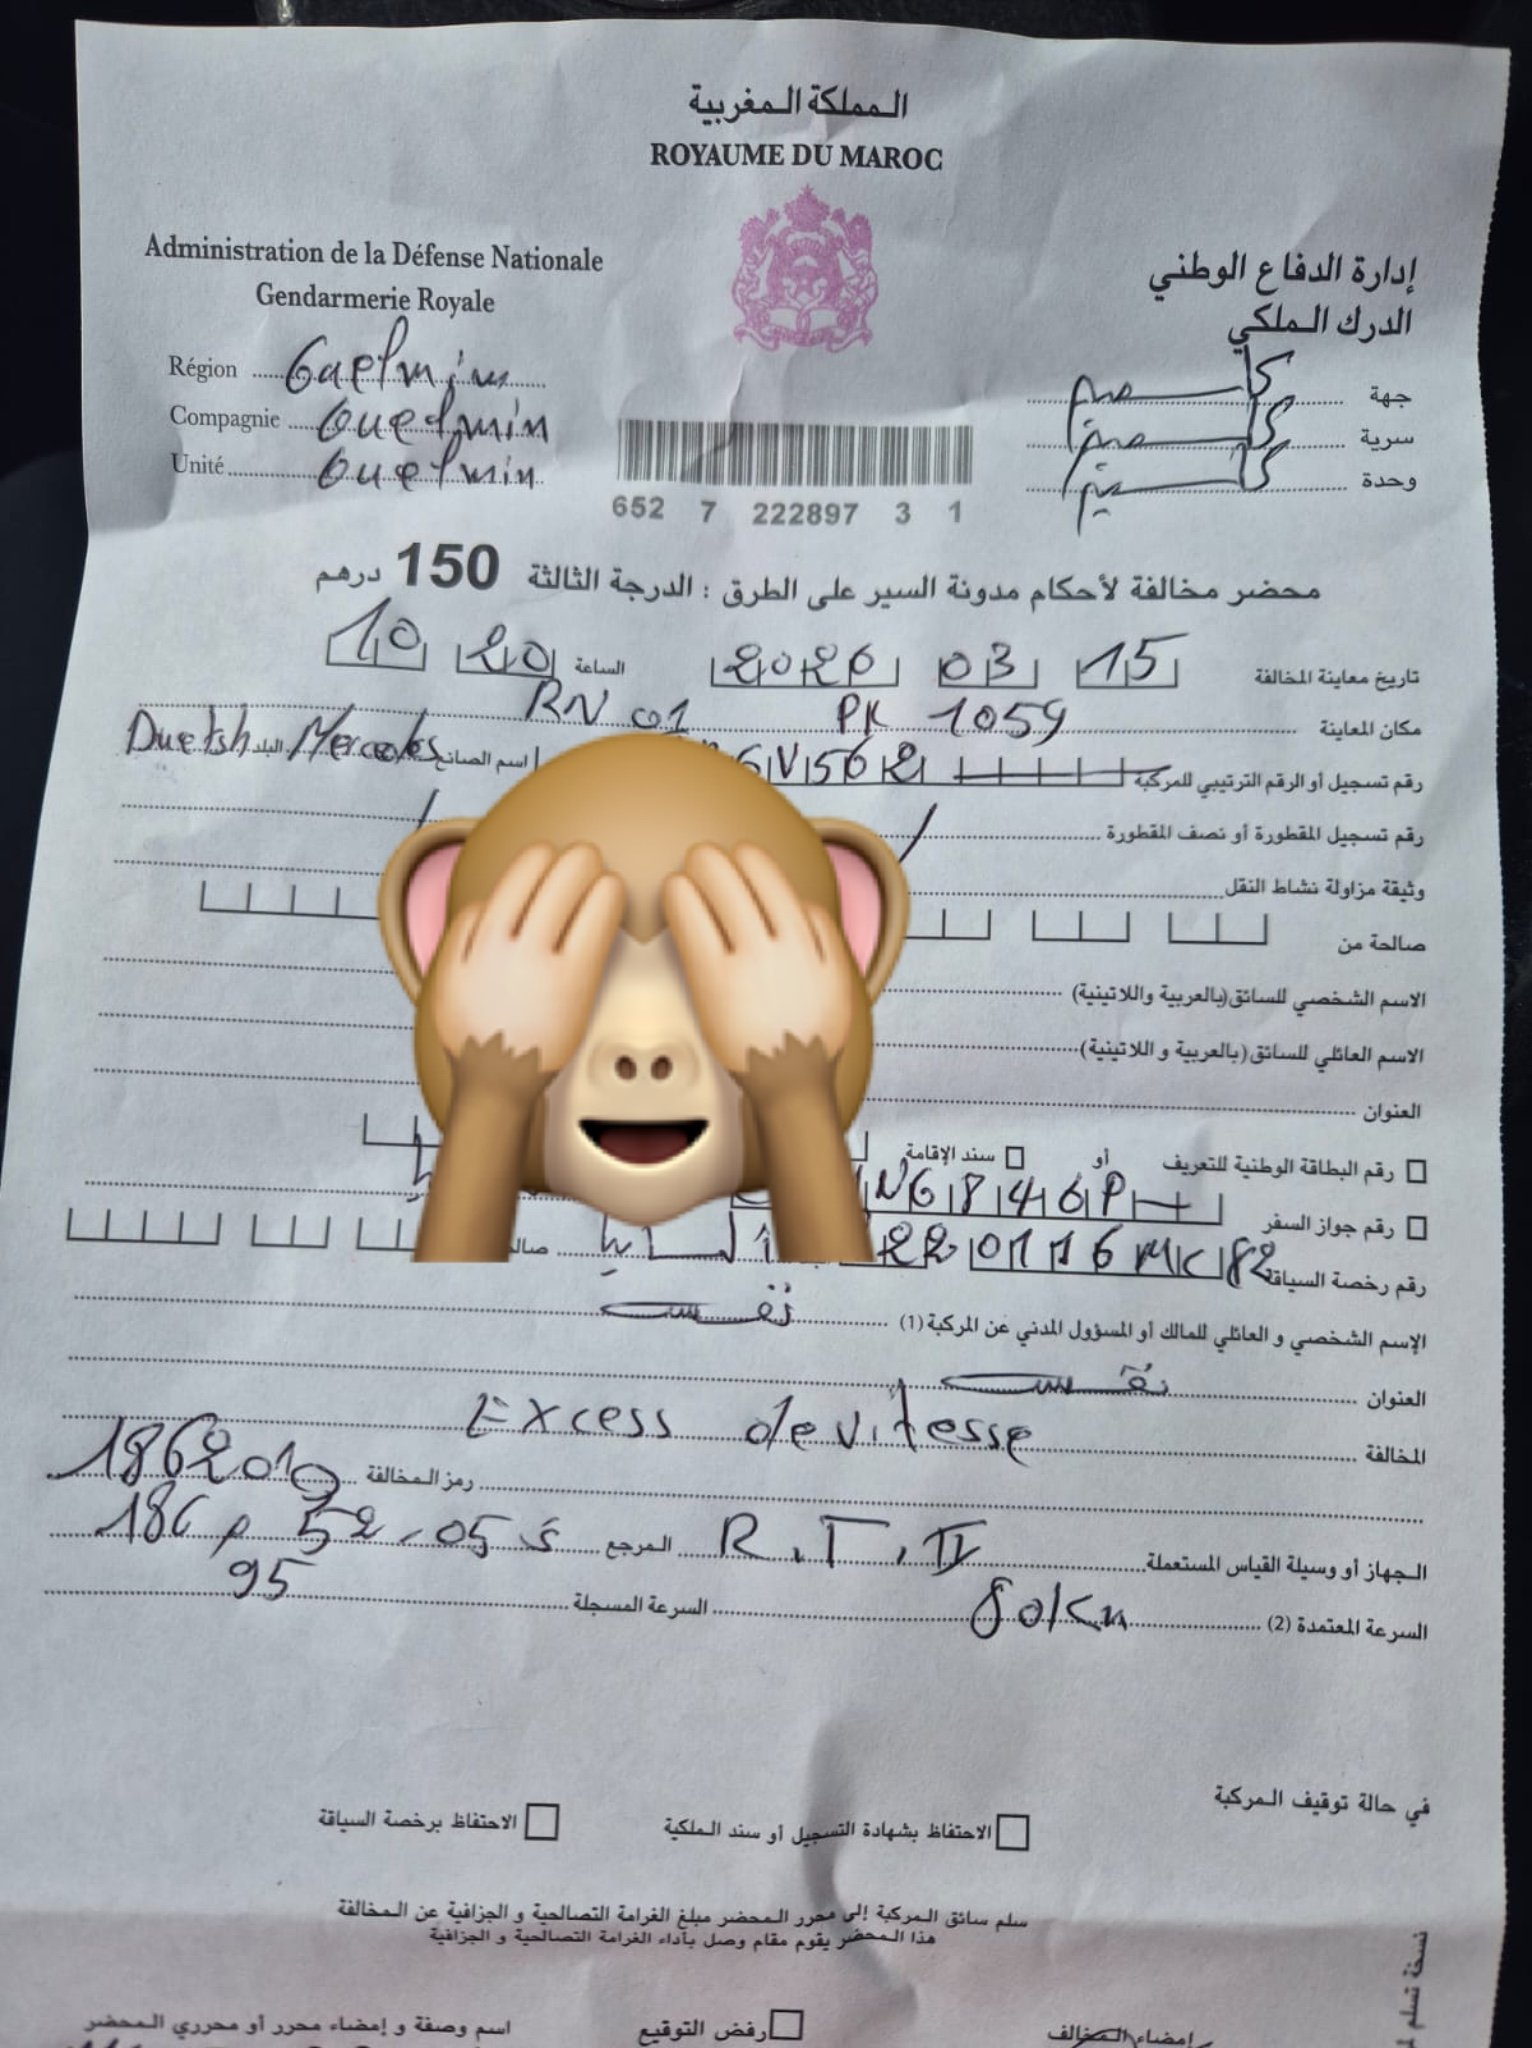 المملكة المغربية
ROYAUME DU MAROC
Administration de la Défense Nationale
Gendarmerie Royale
إدارة الدفاع الوطني
الدرك الملكي
Région Guelmim
جهة كلميم
Compagnie Guelmin
سرية كلميم
Unité Guelmin
وحدة كلميم
652 7 222897 3 1
محضر مخالفة لأحكام مدونة السير على الطرق : الدرجة الثالثة 150 درهم
تاريخ معاينة المخالفة 15 03 2026 الساعة 10 20
مكان المعاينة RN 01 PK 1059
رقم تسجيل أو الرقم الترتيبي للمركبة V562 اسم الصانع Mercedes البلد Duetsh
رقم تسجيل المقطورة أو نصف المقطورة /
وثيقة مزاولة نشاط النقل
صالحة من
الاسم الشخصي للسائق (بالعربية واللاتينية)
الاسم العائلي للسائق (بالعربية و اللاتينية)
العنوان
رقم البطاقة الوطنية للتعريف أو سند الإقامة
رقم جواز السفر N6846P
رقم رخصة السياقة 220116MC82
الإسم الشخصي و العائلي للمالك أو المسؤول المدني عن المركبة (1) نفسه
العنوان نفسه
المخالفة Excess de vitesse
رمز المخالفة
الجهاز أو وسيلة القياس المستعملة المرجع
السرعة المعتمدة (2) 80 km السرعة المسجلة 95
في حالة توقيف المركبة
الاحتفاظ بشهادة التسجيل أو سند الملكية الاحتفاظ برخصة السياقة
سلم سائق المركبة إلى محرر المحضر مبلغ الغرامة التصالحية و الجزافية عن المخالفة
هذا المحضر يقوم مقام وصل بأداء الغرامة التصالحية و الجزافية
نسخة تسلم
إمضاء المخالف رفض التوقيع اسم وصفة و إمضاء محرر أو محرري المحضر